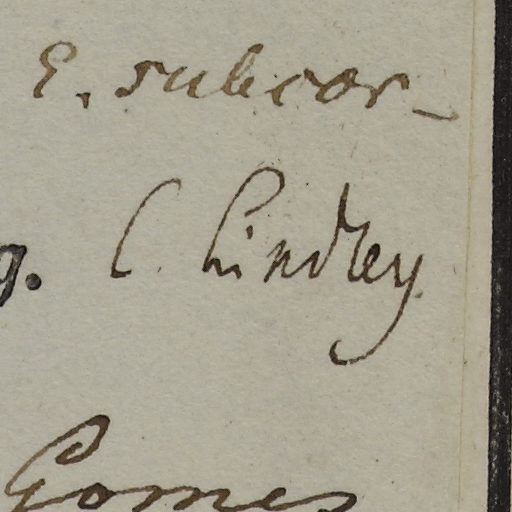 E. subcor-
g. C. Lindley.
Gomes